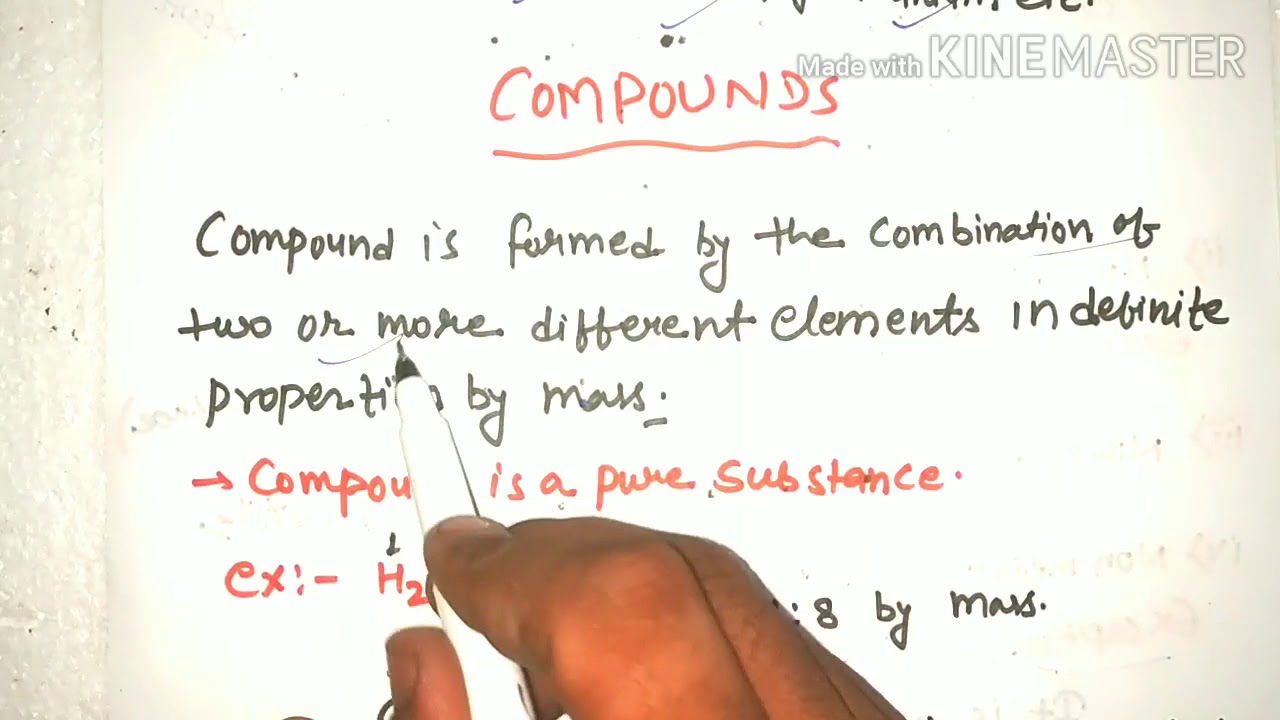 etc.
Made with KINEMASTER
COMPOUNDS
Compound is formed by the combination of
two or more different elements in definite
by mass.
→ is a pure substance.
ex:- H2
:8 by mass.